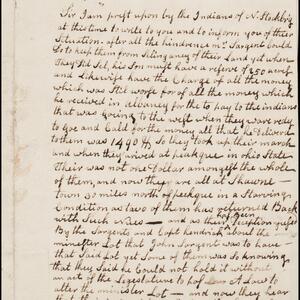 Sir I am prest upon by the Indians of N Stockbrig
at this time to write to you and to inform you of their
Situation. after all the hindrence Mr Sargent Could
Do to kept them from Siting any of their Land yet when
they Did Sel, his Son must have a reserve of 250 acres
and Likewise have the Charge of all the money
which was Still worse for of all the money which
he received in albaney for the to pay to the indians
that was going to the west when they ware redy
to Goe and Cald for the money all that he Delivered
to them was 1490 So they took up their march
and when they arived at peekque in ohio State
their was not one Dollar amongst the whole
of them, and now they are all at Shawne
town 30 miles north of peekque in a Starving
Condition as two of them has returned Back
with Such News — and as their has Been Deception
By the Sargents and Capt hendrick about the
minester Lot that John Sargent was to have
that Said Lot yet Some of them was So knowing
that they Said he Could not hold it without
an act of the Legislature to pas a Law to
alter the minister Lot — and now they hear